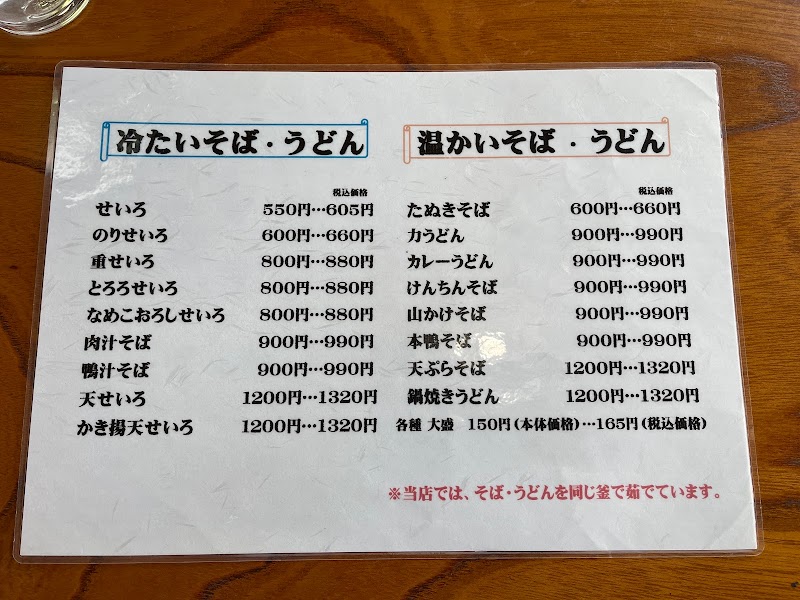 冷たいそば・うどん
税込価格
せいろ 550円…605円
のりせいろ 600円…660円
重せいろ 800円…880円
とろろせいろ 800円…880円
なめこおろしせいろ 800円…880円
肉汁そば 900円…990円
鴨汁そば 900円…990円
天せいろ 1200円…1320円
かき揚天せいろ 1200円…1320円
温かいそば・うどん
税込価格
たぬきそば 600円…660円
力うどん 900円…990円
カレーうどん 900円…990円
けんちんそば 900円…990円
山かけそば 900円…990円
本鴨そば 900円…990円
天ぷらそば 1200円…1320円
鍋焼きうどん 1200円…1320円
各種 大盛 150円(本体価格)…165円(税込価格)
※当店では、そば・うどんを同じ釜で茹でています。